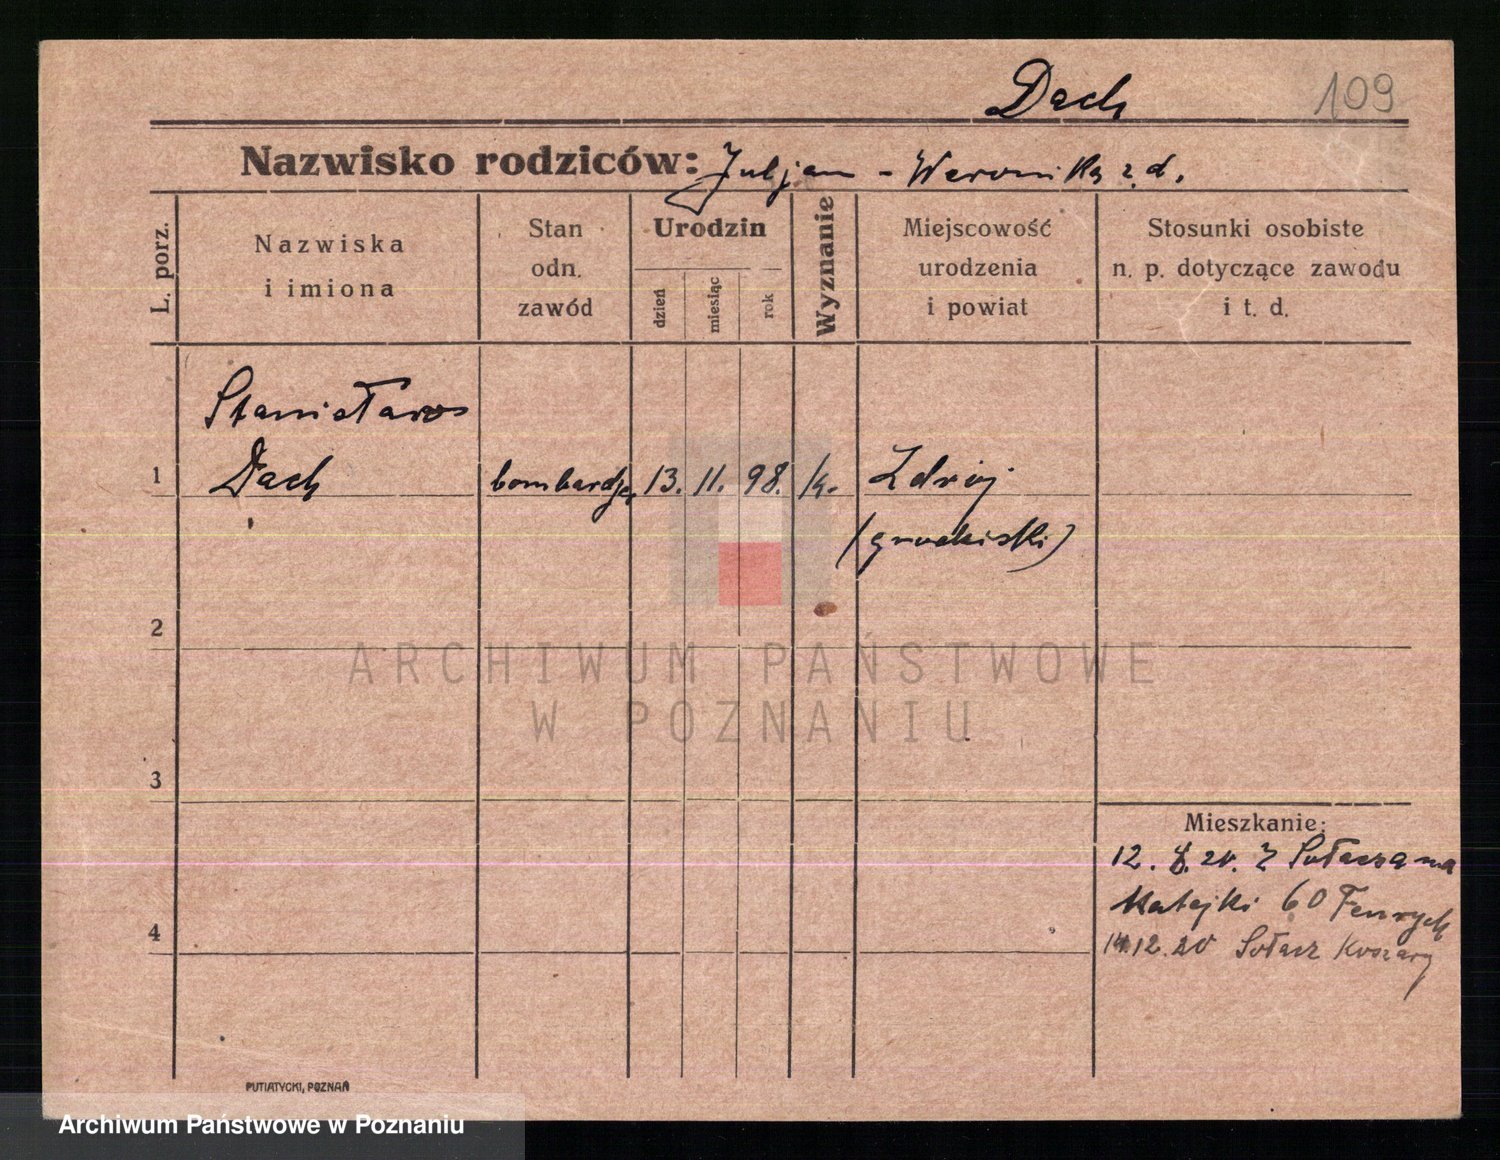 Dach 109
Nazwisko rodziców: Juljan - Weronika z d.
L. porz.
Nazwiska
i imiona
Stan
odn.
zawód
Urodzin
dzień
miesiąc
rok
Wyznanie
Miejscowość
urodzenia
i powiat
Stosunki osobiste
n. p. dotyczące zawodu
i t. d.
Stanisław
1 Dach bombardjer 13. 11. 98. k. Zdrój
(grodziski)
2
3
4
Mieszkanie:
12. 8. 20. Z Sołacza na
Matejki 60 Fenrych
14.12.20 Sołacz Koszary
PUTIATYCKI, POZNAŃ
ARCHIWUM PAŃSTWOWE
W POZNANIU
Archiwum Państwowe w Poznaniu